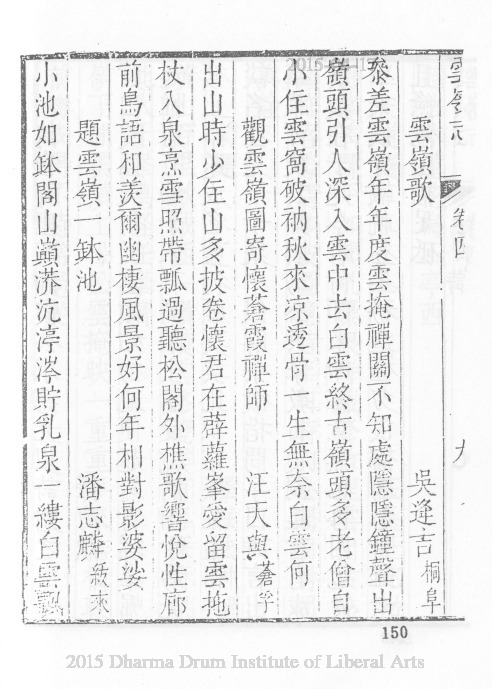 雲嶺志
卷四
九
雲嶺歌
吳逢吉桐阜
參差雲嶺年年度雲掩禪關不知處隱隱鐘聲出
嶺頭引人深入雲中去白雲終古嶺頭多老僧自
小住雲窩破衲秋來凉透骨一生無奈白雲何
觀雲嶺圖寄懷蒼霞禪師
汪天與蒼孚
出山時少住山多披卷懷君在薜蘿峯愛留雲拖
杖入泉烹雪照帶瓢過聽松閣外樵歌響悅性廊
前鳥語和羨爾幽棲風景好何年相對影婆娑
題雲嶺一鉢池
潘志麟紱來
小池如鉢閣山巔漭沆渟涔貯乳泉一縷白雲
150
2015 Dharma Drum Institute of Liberal Arts